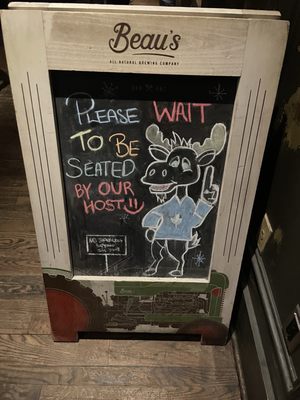 Beau's
ALL NATURAL BREWING COMPANY
PLEASE WAIT
TO BE
SEATED
BY OUR
HOST
NO